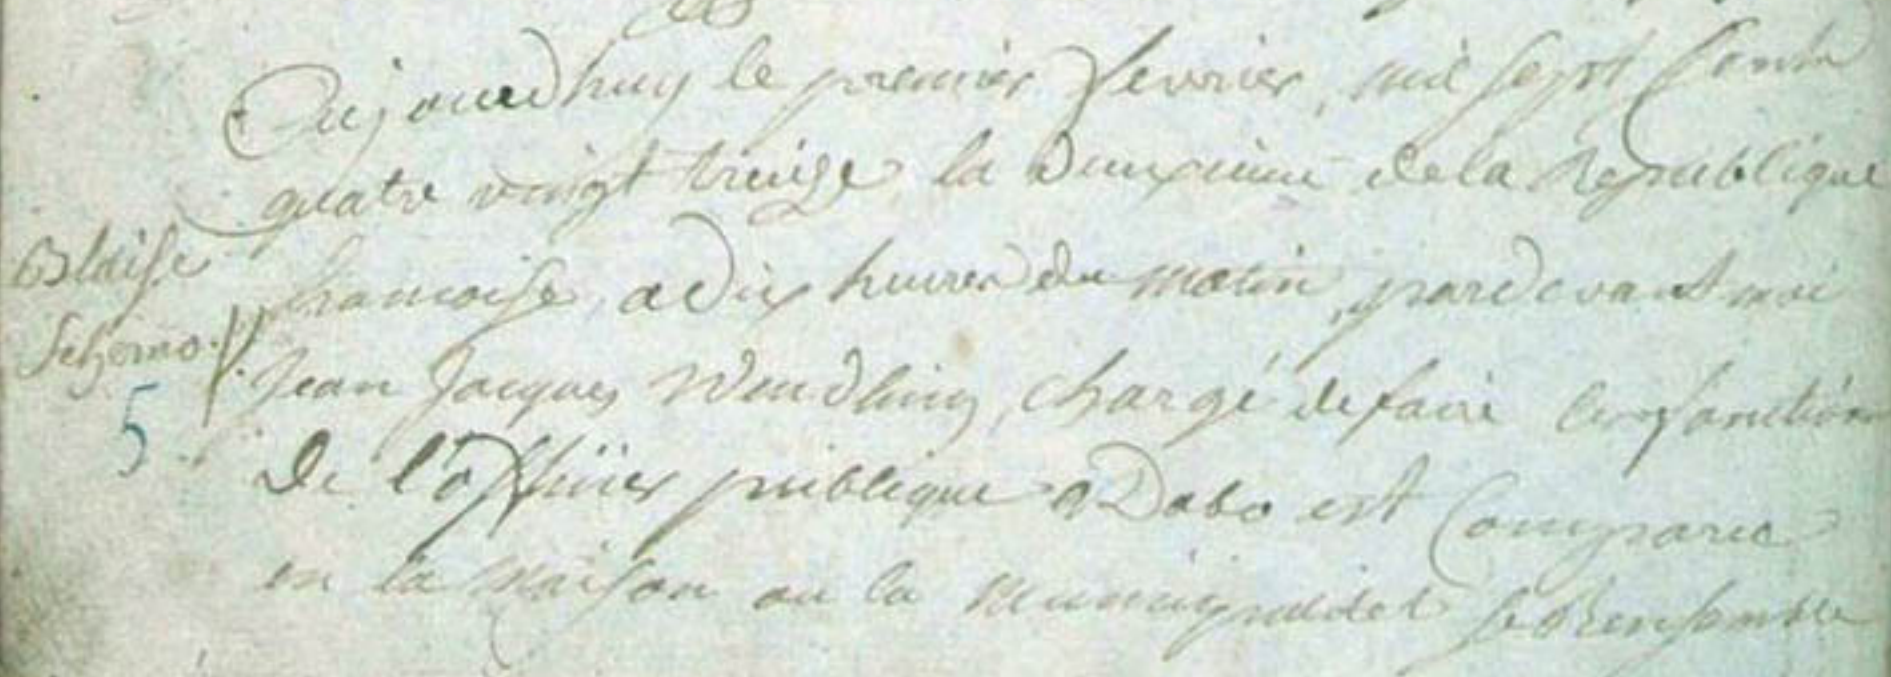 Aujourdhuy le premier fevrier, mil sept Cents
quatre vingt treize la deuxieme dela Republique
Blaise
francoise, a dix heures du matin, pardevant moi
Schomo.
Jean Jacques Wendling, chargé de faire les fonctions
5
De l'officier publique a Dabo est Comparu
en la maison ou la municipalitet se Rensemble